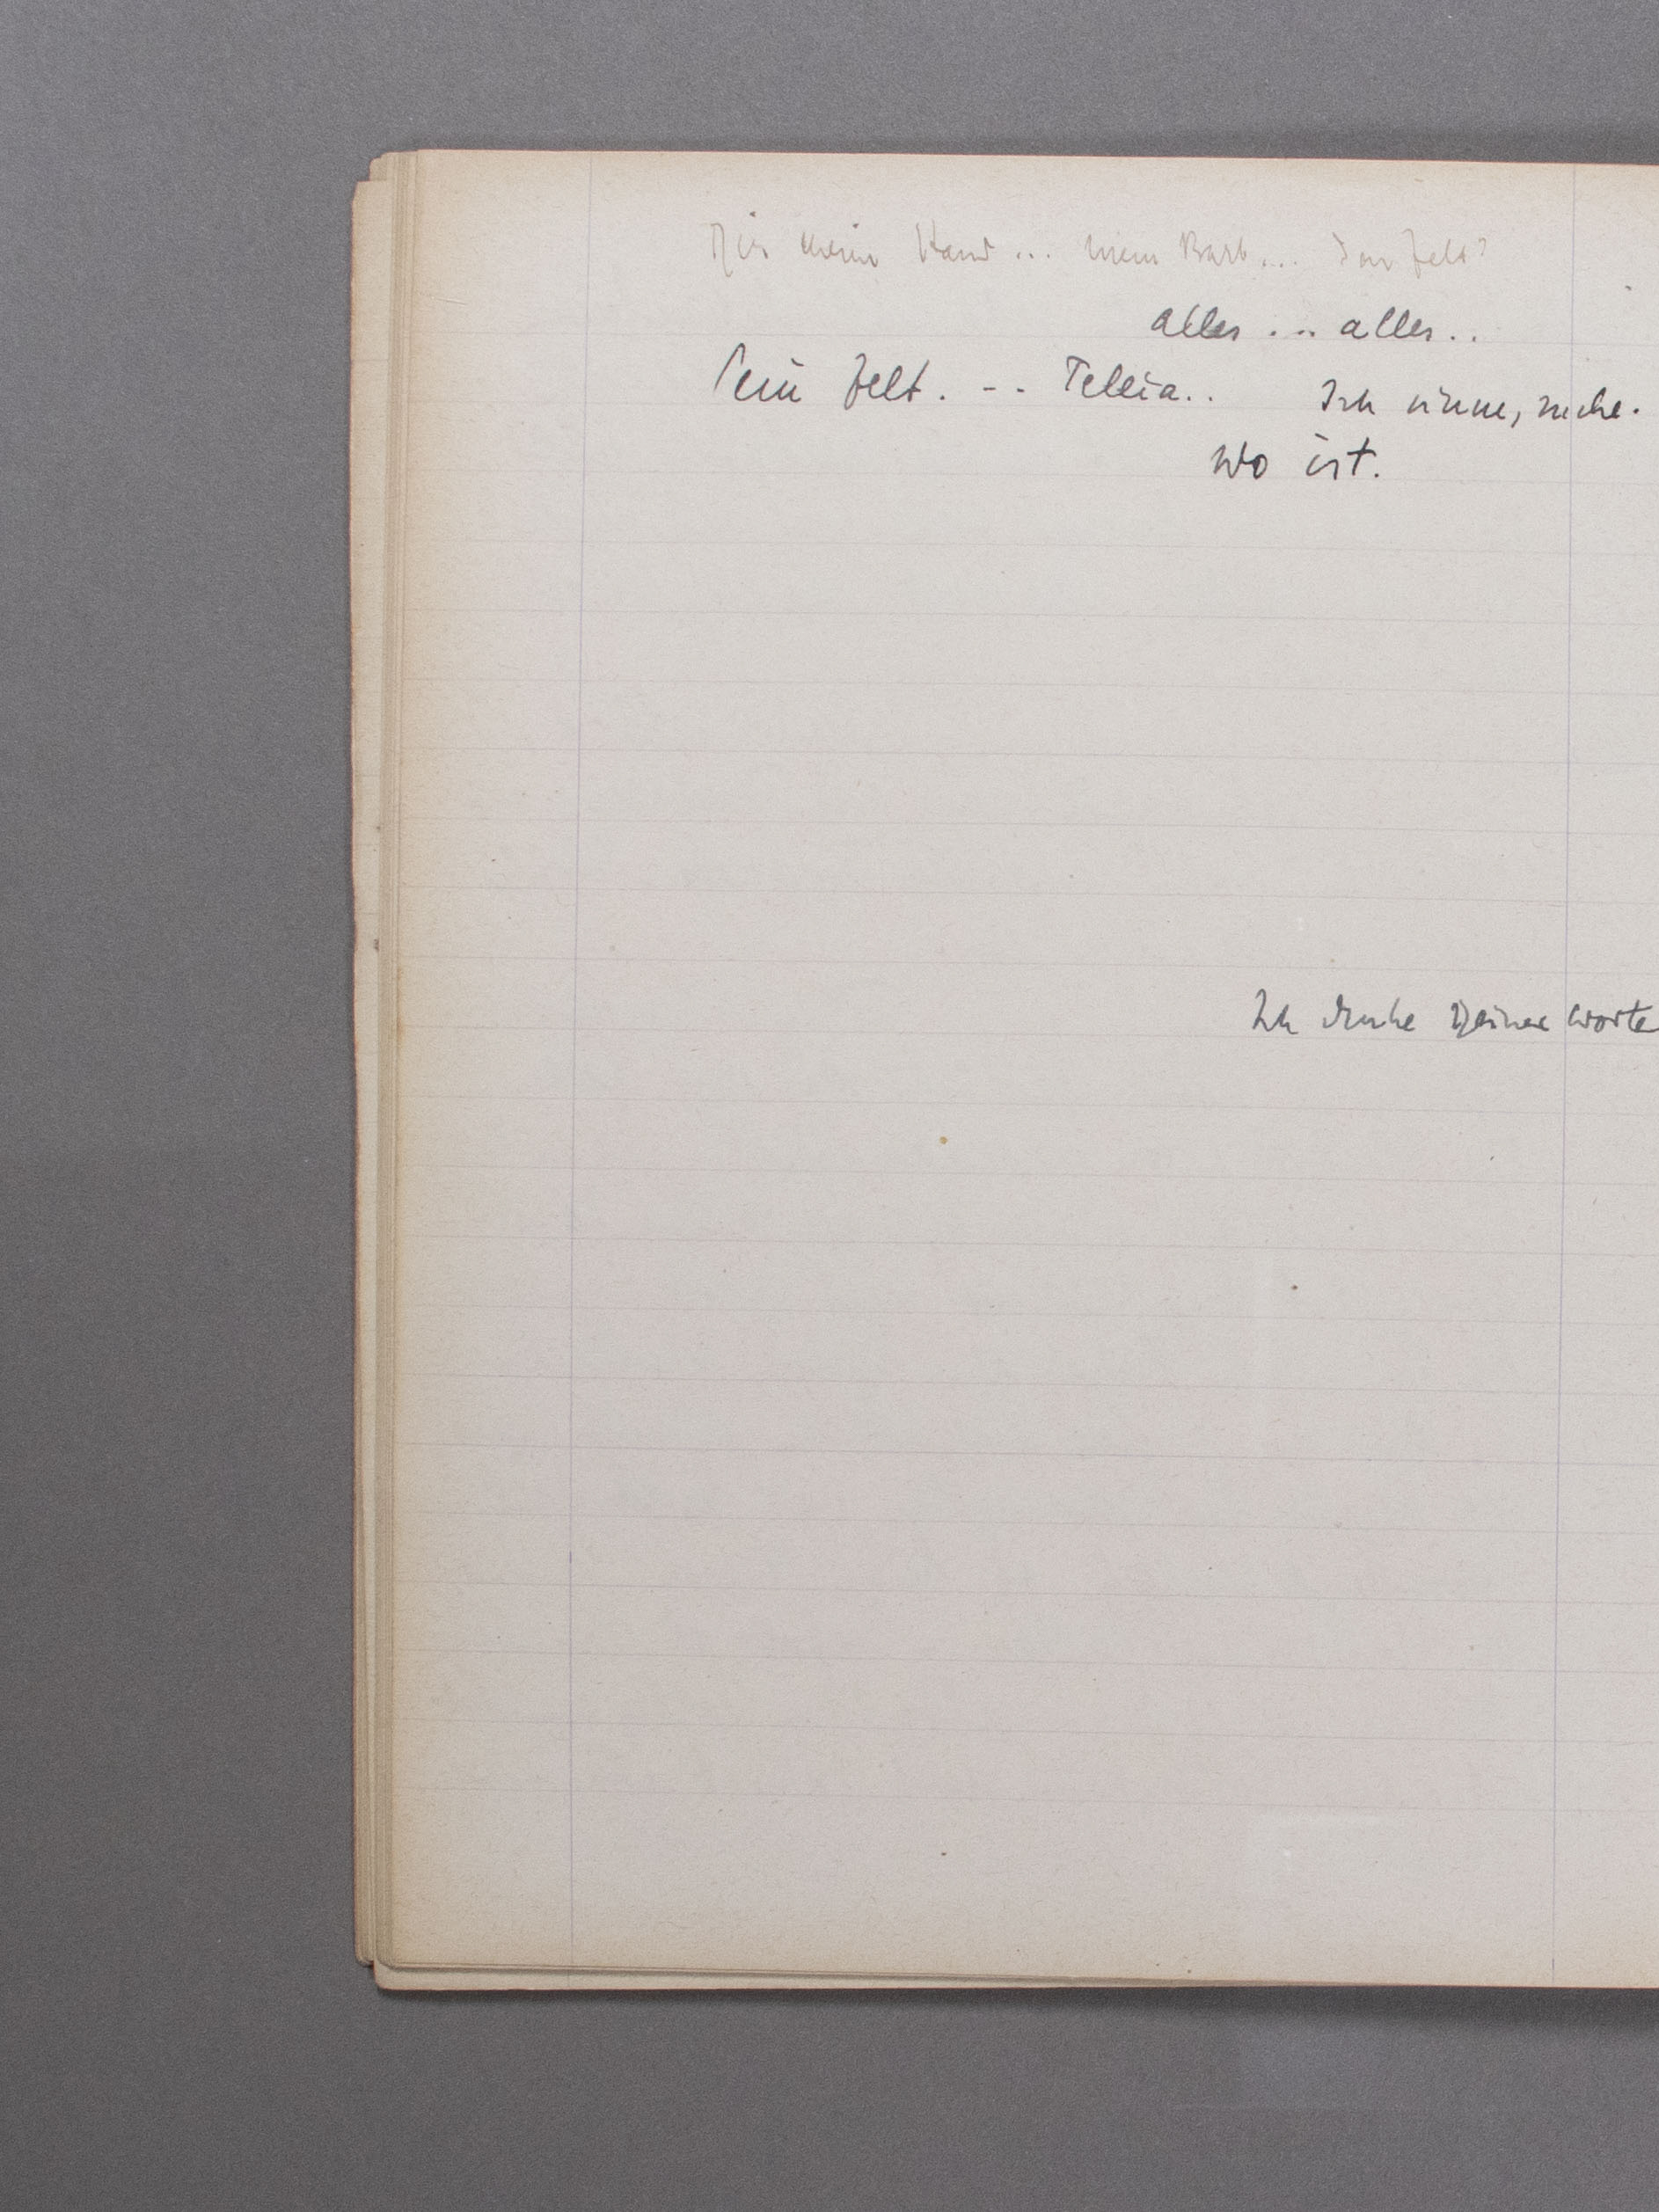 Dir meine Hand ... mein Bart ... Das Zelt?
alles ... alles ..
Sein Zelt. -- Tellia.. Ich sinne, suche.
Wo ist.
Ich denke Deiner Worte